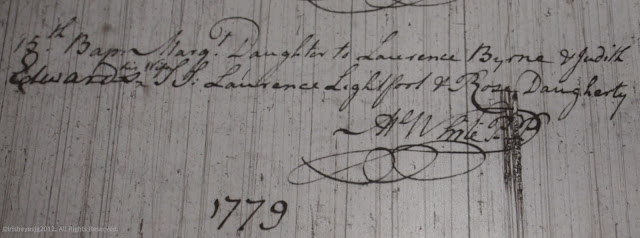 15th Bapd Margt Daughter to Lawrence Byrne & Judith
Edwards his Wife SS: Lawrence Lightfoot & Rose Daugherty
White P.P
1779
©IrishEyesJg2012, All Rights Reserved.